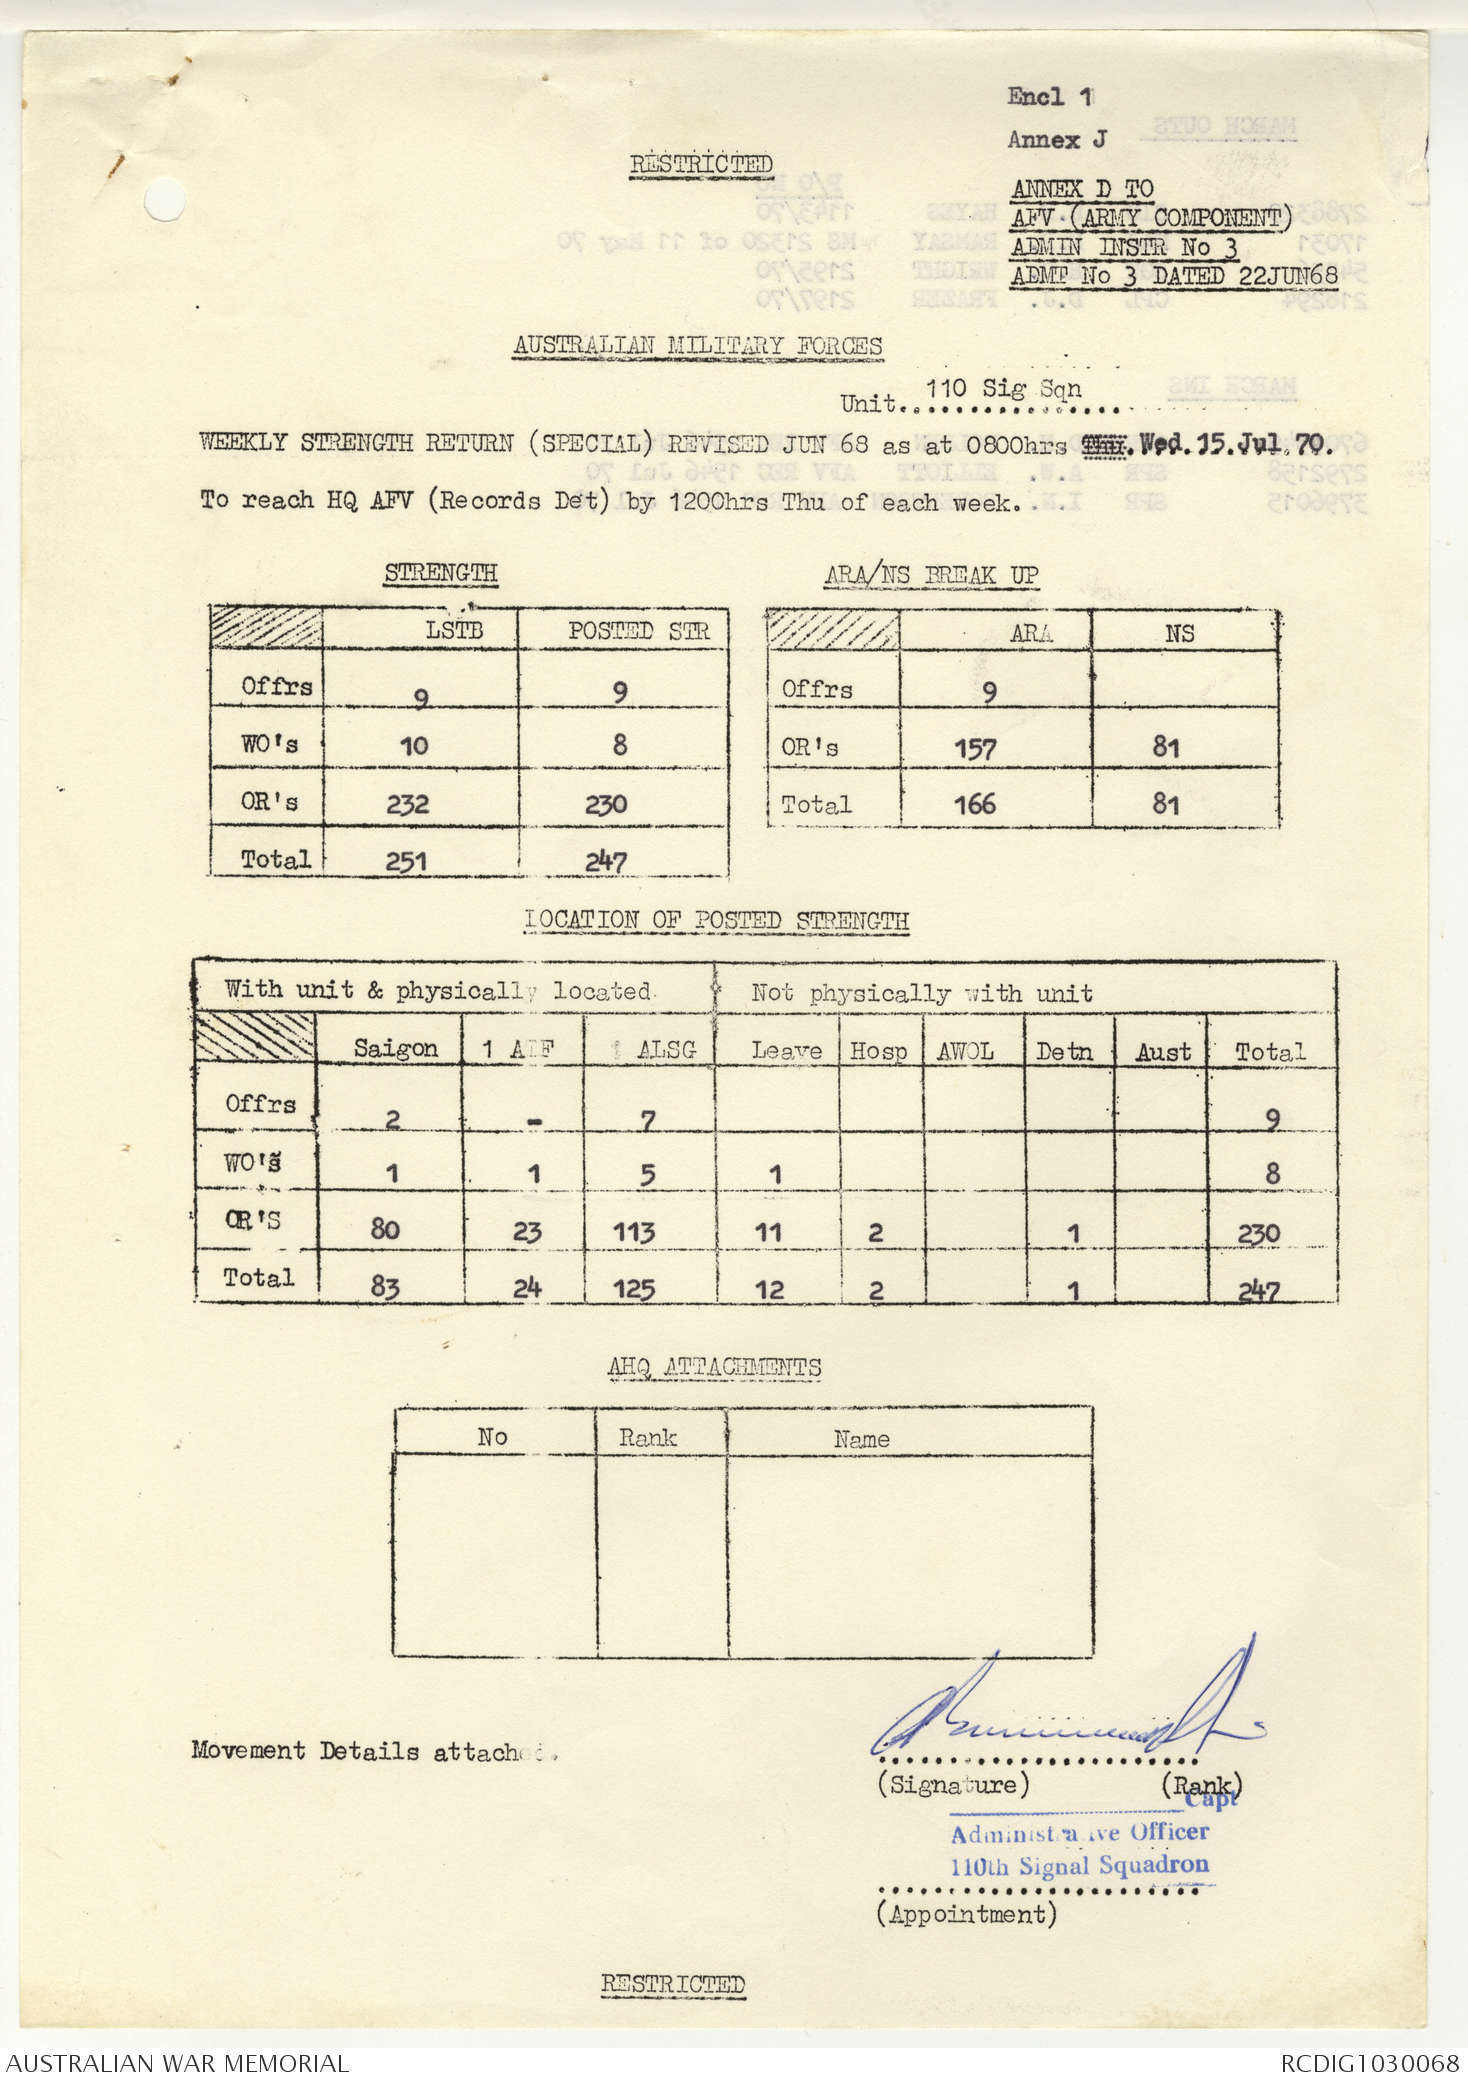 Encl 1
Annex J
RESTRICTED
ANNEX D TO
AFV (ARMY COMPONENT)
ADMIN INSTR No 3
ADMT No 3 DATED 22JUN68
AUSTRALIAN MILITARY FORCES
Unit. 110 Sig Sqn
WEEKLY STRENGTH RETURN (SPECIAL) REVISED JUN 68 as at 0800hrs Wed. 15. Jul. 70.
To reach HQ AFV (Records Det) by 1200hrs Thu of each week.
STRENGTH
LSTB POSTED STR
Offrs 9 9
WO's 10 8
OR's 232 230
Total 251 247
ARA/NS BREAK UP
ARA NS
Offrs 9
OR's 157 81
Total 166 81
LOCATION OF POSTED STRENGTH
With unit & physically located. Not physically with unit
Saigon 1 ATF 1 ALSG Leave Hosp AWOL Detn Aust Total
Offrs 2 - 7 9
WO's 1 1 5 1 8
OR'S 80 23 113 11 2 1 230
Total 83 24 125 12 2 1 247
AHQ ATTACHMENTS
No Rank Name
Movement Details attached.
(Signature) (Rank)
Capt
Administrative Officer
110th Signal Squadron
(Appointment)
RESTRICTED
AUSTRALIAN WAR MEMORIAL RCDIG1030068